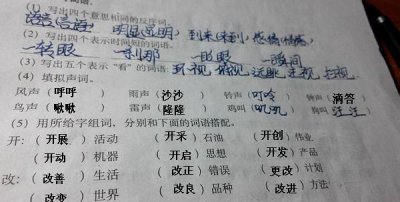 (1) 写出四个意思相同的反序词。
(2) 写出四个表示时间短的词语。
一转眼 一刹那 一眨眼 一瞬间
(3) 写出五个表示“看”的词语
(4) 填拟声词。
风声（呼呼） 雨声（沙沙） 铃声（叮咚） 钟声（滴答）
鸟声（啾啾） 雷声（隆隆） 鸡叫（叽叽） 狗叫（汪汪）
(5) 用所给字组词，分别和下面的词语搭配。
开：（开展）活动 （开采）石油 （开创）伟业
（开动）机器 （开启）思想 （开发）产品
改：（改善）生活 （改正）错误 （更改）计划
（改变）世界 （改良）品种 （改进）方法